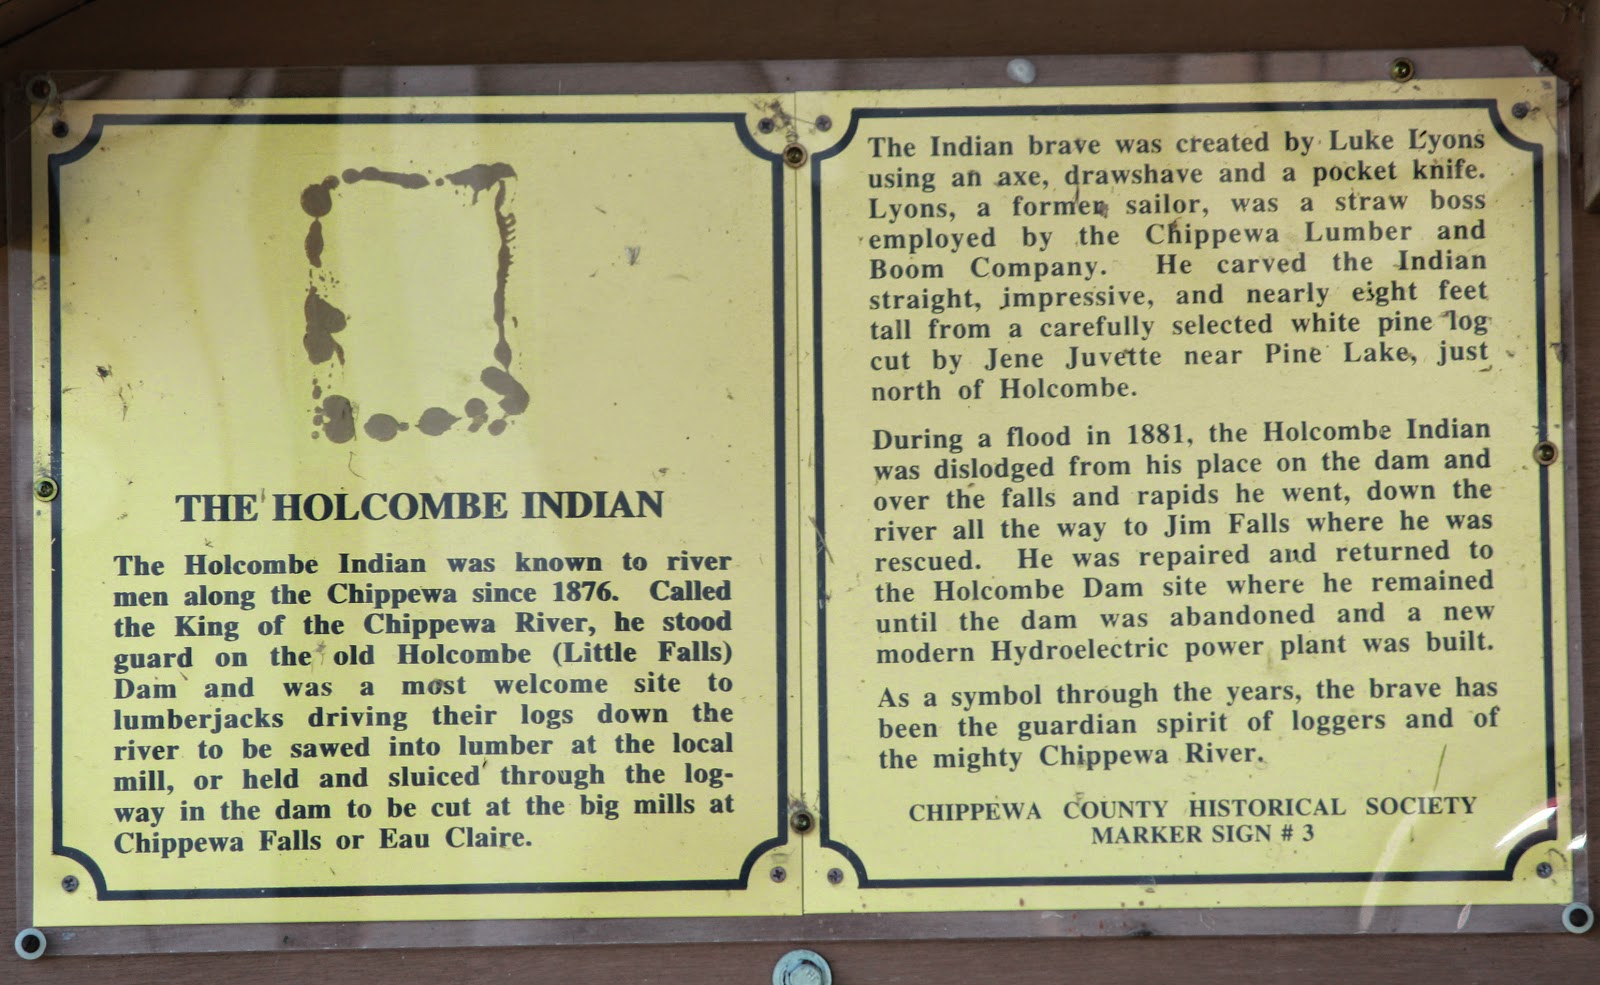 THE HOLCOMBE INDIAN
The Holcombe Indian was known to river
men along the Chippewa since 1876. Called
the King of the Chippewa River, he stood
guard on the old Holcombe (Little Falls)
Dam and was a most welcome site to
lumberjacks driving their logs down the
river to be sawed into lumber at the local
mill, or held and sluiced through the log-
way in the dam to be cut at the big mills at
Chippewa Falls or Eau Claire.
The Indian brave was created by Luke Lyons
using an axe, drawshave and a pocket knife.
Lyons, a former sailor, was a straw boss
employed by the Chippewa Lumber and
Boom Company. He carved the Indian
straight, impressive, and nearly eight feet
tall from a carefully selected white pine log
cut by Jene Juvette near Pine Lake, just
north of Holcombe.
During a flood in 1881, the Holcombe Indian
was dislodged from his place on the dam and
over the falls and rapids he went, down the
river all the way to Jim Falls where he was
rescued. He was repaired and returned to
the Holcombe Dam site where he remained
until the dam was abandoned and a new
modern Hydroelectric power plant was built.
As a symbol through the years, the brave has
been the guardian spirit of loggers and of
the mighty Chippewa River.
CHIPPEWA COUNTY HISTORICAL SOCIETY
MARKER SIGN # 3